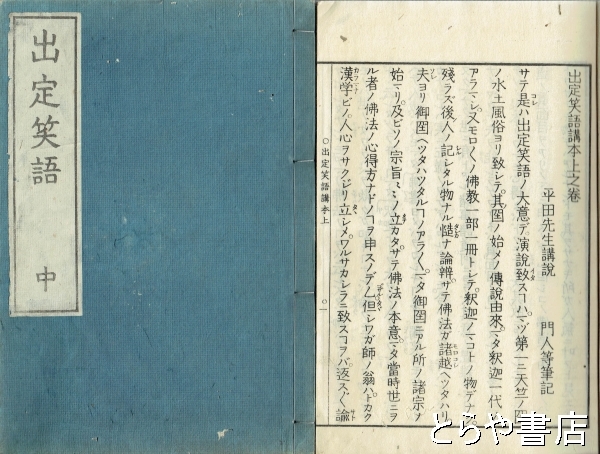 出定笑語
中
出定笑語講本上之卷
平田先生講説 門人等筆記
サテ是ハ出定笑語ノ大意ヲ演説致スコハマヅ第一ニ天竺ノ国
ノ水土風俗ヨリ致シテ其国ノ始メノ傳説由來マタ釈迦一代
アラマシ又モロ〱ノ佛教一部一冊トシテ釈迦ノマコトノ物デナク
殘ラズ後人ノ記シタル物ナル慥ナ論辨サテ佛法ガ諸越ヘツタハリ
夫ヨリ御国ヘツタハツタルコノアラ〱マタ御国ニアル所ノ諸宗ノ
始マリ及ビソノ宗旨〻ノ立カタサテ佛法ノ本意マタ當時世ニヲ
ル者ノ佛法ノ心得方ナドノコヲ申スノデム但シワガ師ノ翁ハトカク
漢学ビノ人心ヲサクジリ立シメワルサカシラニ致スコヲバ返ス〲論
○出定笑語講本上
○一
とらや書店